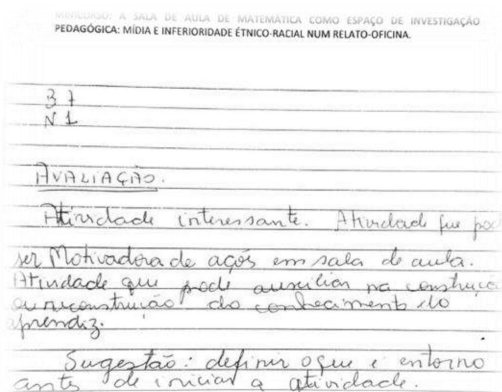 MINICURSO: A SALA DE AULA DE MATEMÁTICA COMO ESPAÇO DE INVESTIGAÇÃO
PEDAGÓGICA: MÍDIA E INFERIORIDADE ÉTNICO-RACIAL NUM RELATO-OFICINA.
37
N1
AVALIAÇÃO.
Atividade interessante. Atividade que pod
ser Motivadora de açõs em sala de aula.
Atividade que pode auxiliar na construçã
ou reconstruição do conhecimento do
aprendiz.
Sugestão: definir o que é entorno
antes de iniciar a atividade.